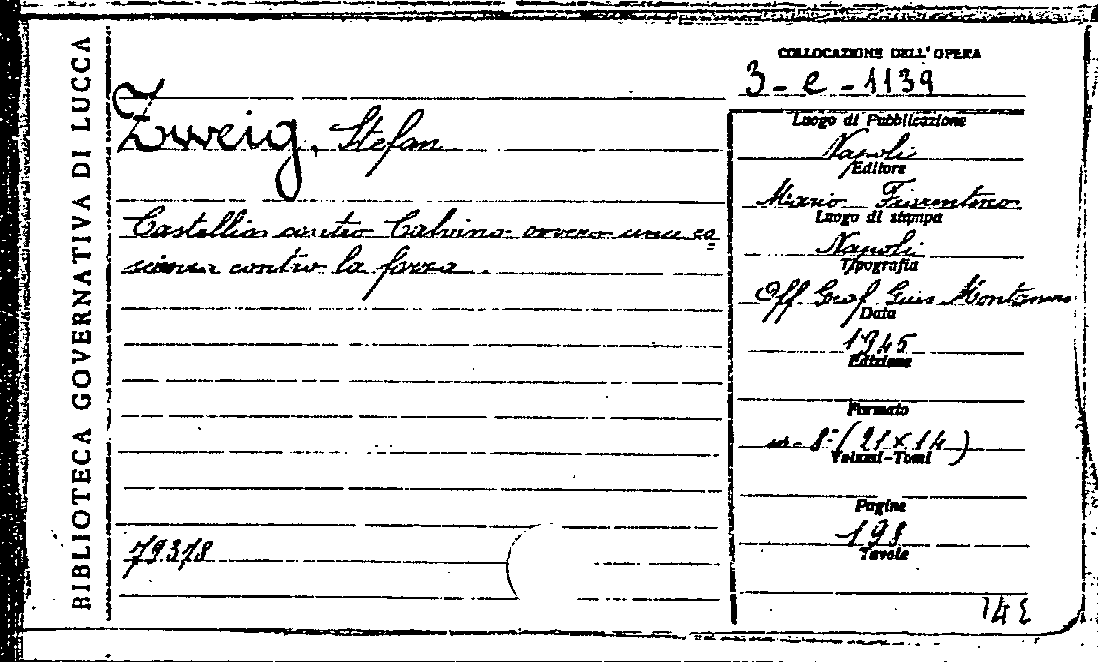 BIBLIOTECA GOVERNATIVA DI LUCCA
Zweig, Stefan
Castellio contro Calvino ovvero una co
scienza contro la forza.
79378
COLLOCAZIONE DELL'OPERA
3-e-1139
Luogo di Pubblicazione
Napoli
Editore
Mario Fiorentino
Luogo di stampa
Napoli
Tipografia
Off. Graf. Gius. Montanino
Data
1945
Edizione
Formato
in-8° (21x14)
Volumi-Tomi
Pagine
198
Tavole